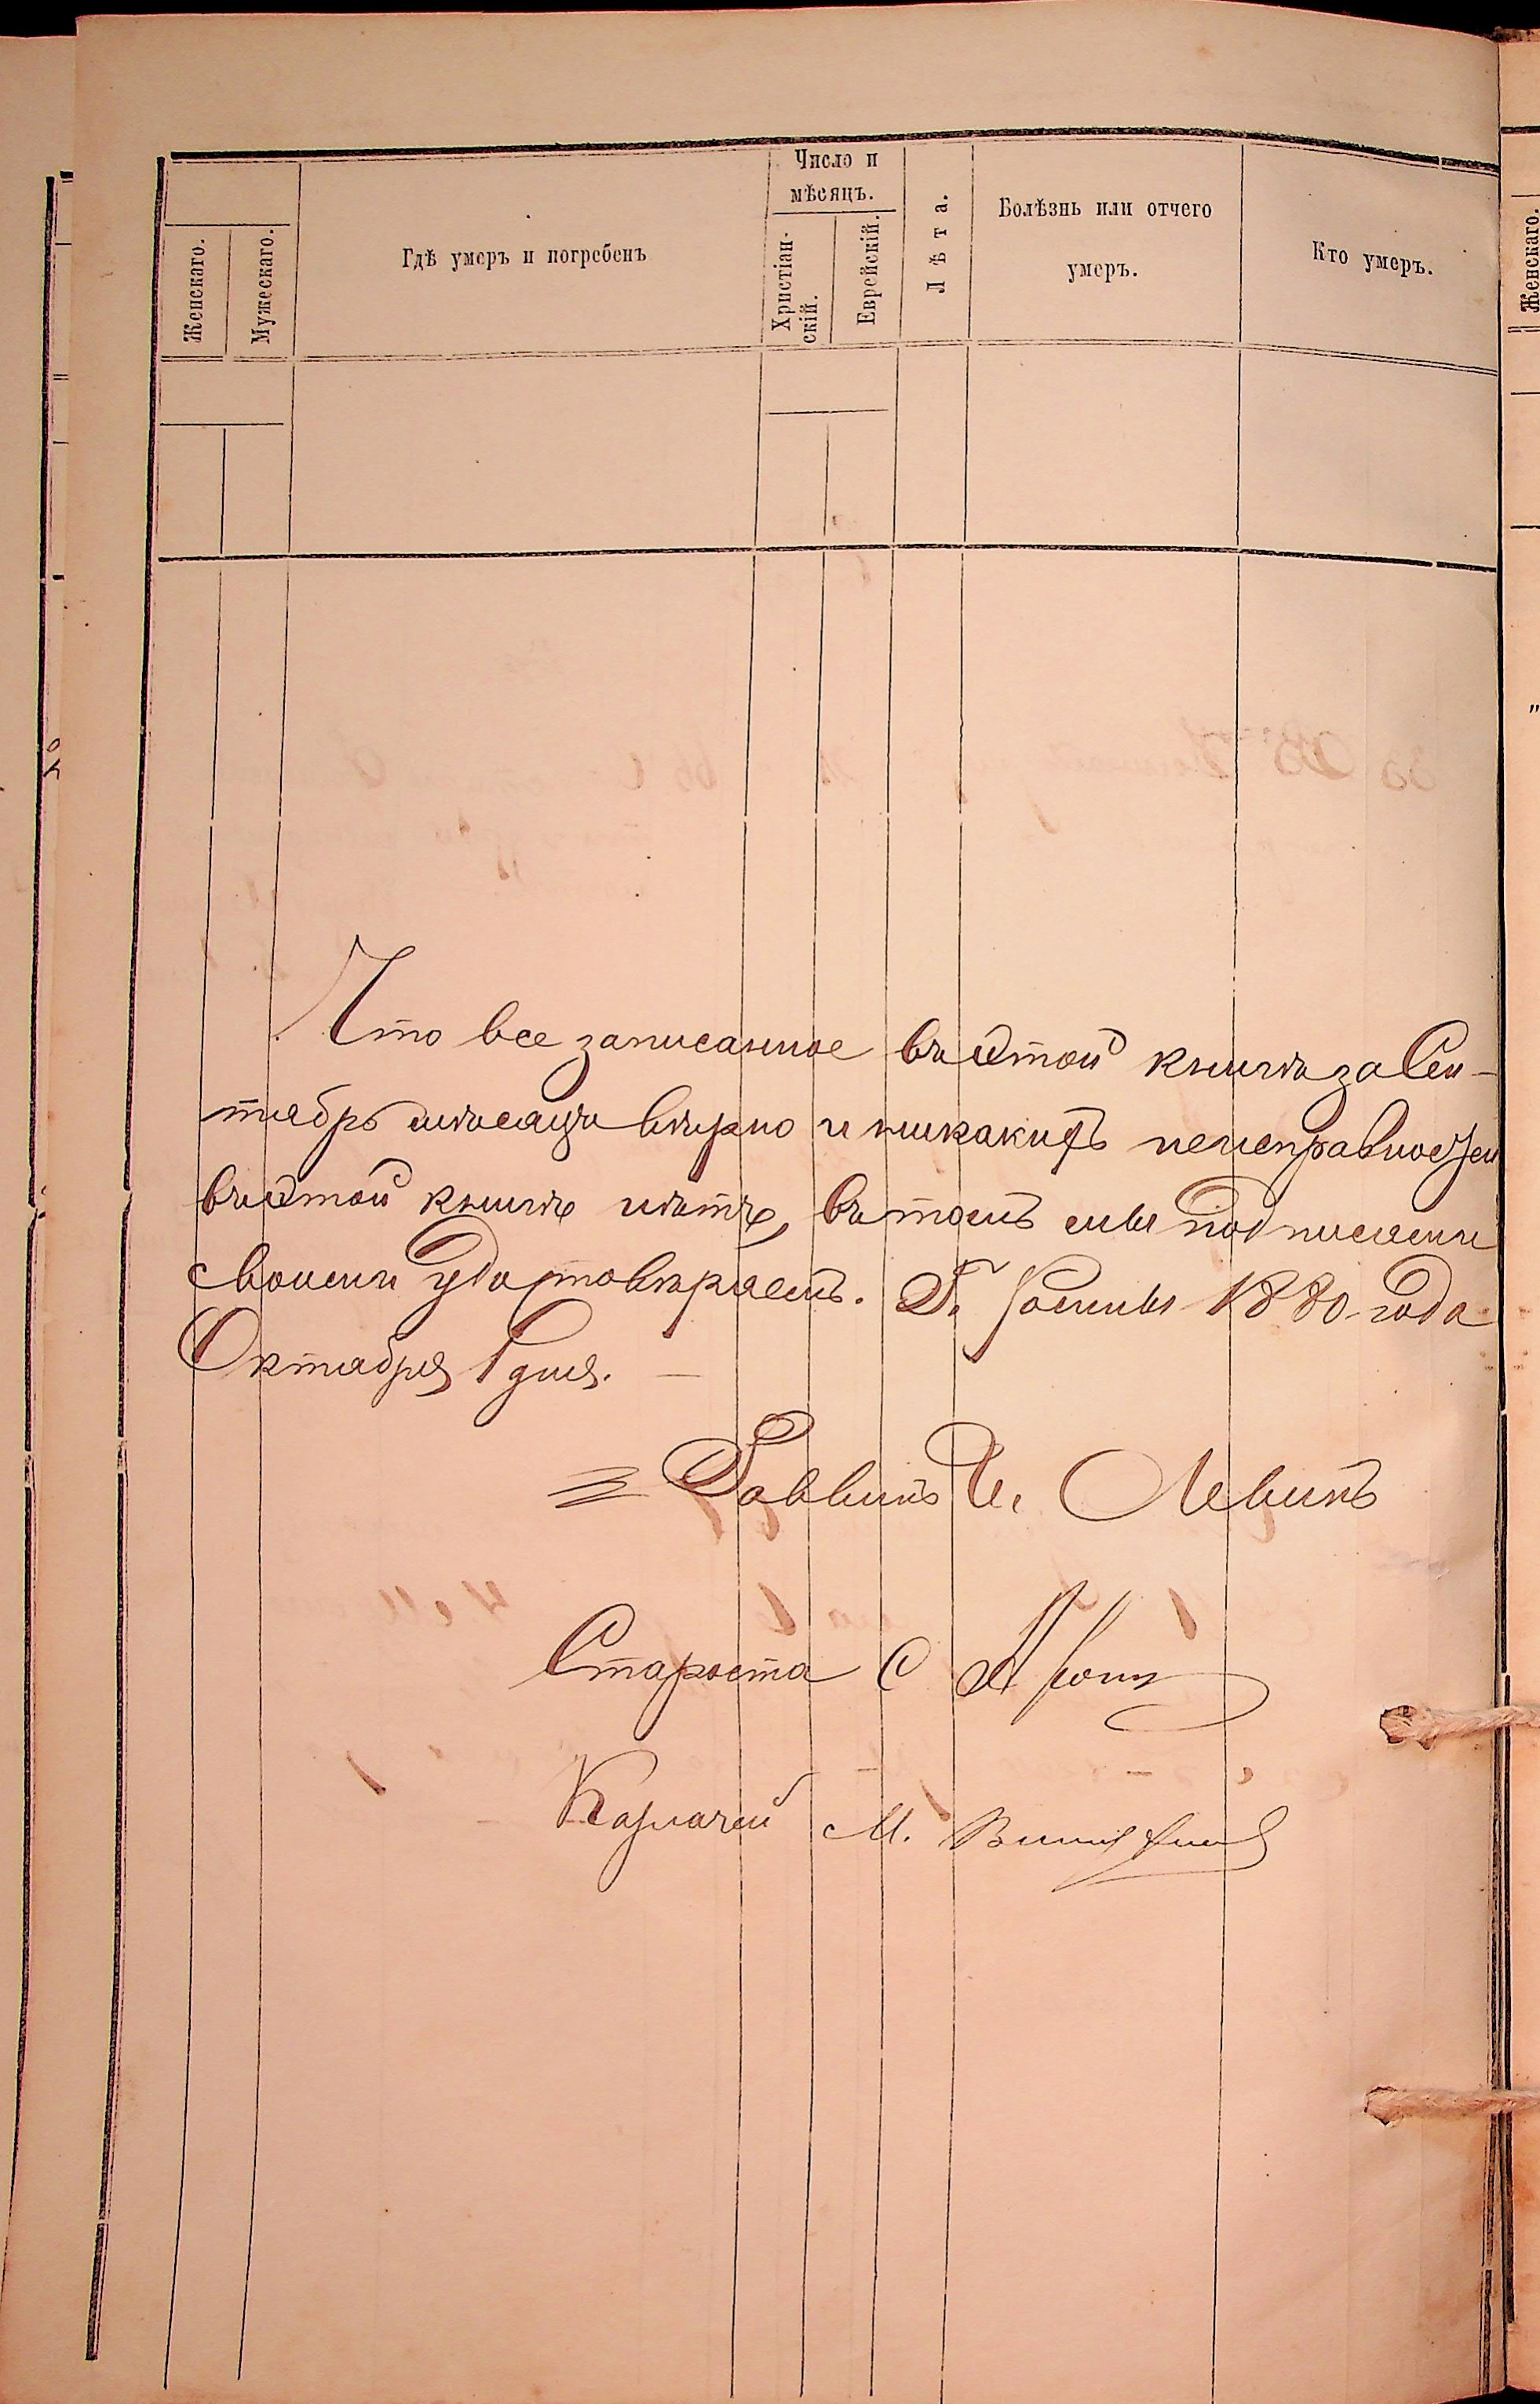 Число и
мѣсяцъ.
Женскаго.
Мужескаго.
Гдѣ умеръ и погребенъ
Христіан-
скій.
Еврейскій.
Лѣта.
Болѣзнь или отчего
умеръ.
Кто умеръ.
Женскаго.
Что все записанное въ этой книгѣ за Сен-
тябрь мѣсяцъ вѣрно и никакихъ неисправностей
въ этой книгѣ нѣтъ, въ томъ мы подписями
своими удостовѣряемъ. Г. Ромны 1880 года
Октября 1 дня. —
Раввинъ И. Левинъ
Староста С
Казначей М.